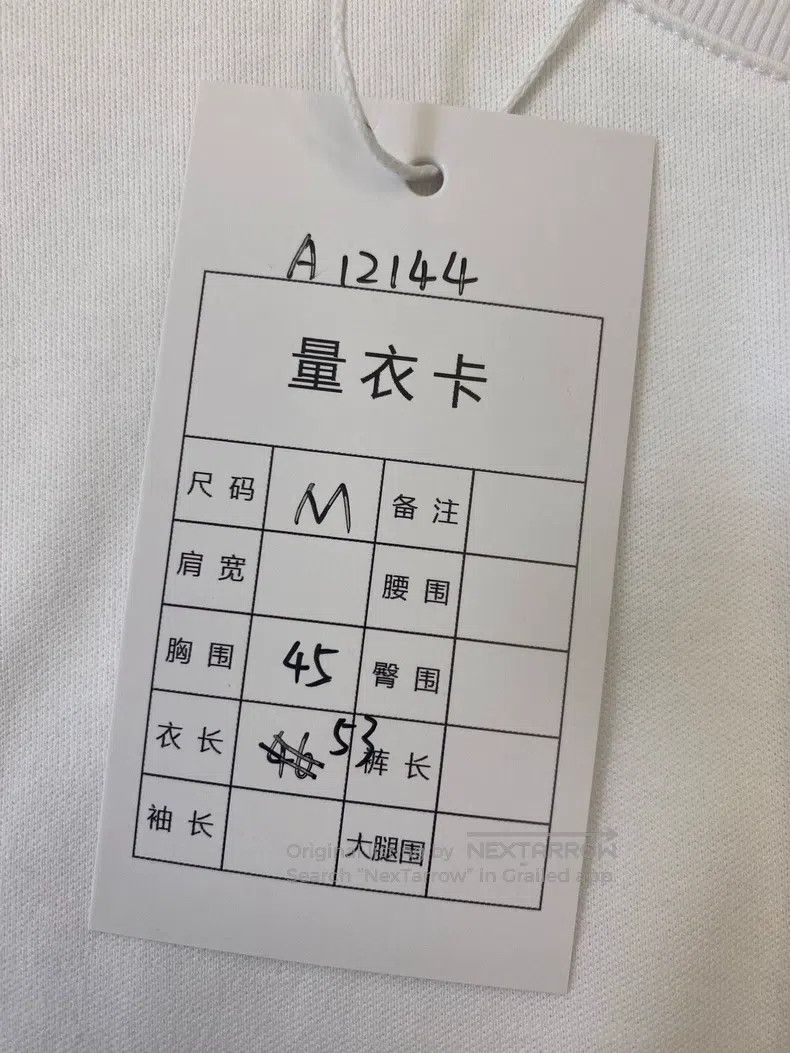 A12144
量衣卡
尺码 M 备注
肩宽 腰围
胸围 45 臀围
衣长 46 53 裤长
袖长 大腿围
Original by NEXTARROW
Search "NexTarrow" in Grailed app